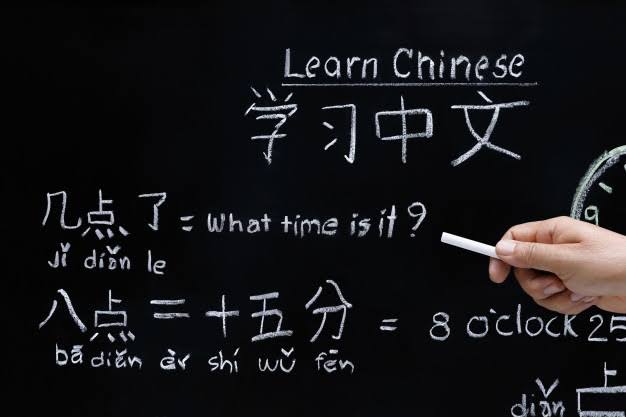 Learn Chinese
学习中文
几点了 = What time is it?
jǐ diǎn le
八点二十五分 = 8 o'clock 25
bā diǎn èr shí wǔ fēn
9
diǎn